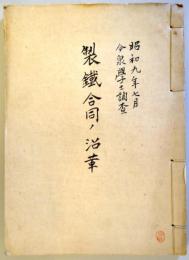 昭和九年七月
今泉學士調査
製鐵合同ノ沿革